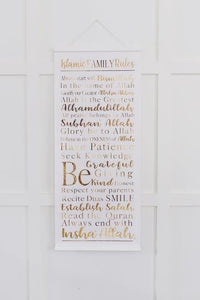 Islamic FAMILY Rules
Always start with Bismillah
In the name of Allah
Glorify your Creator Allahu Akbar
Allah is the Greatest
Alhamdulillah
All praise belongs to Allah
Subhan Allah
Glory be to Allah
Believe in the ONENESS of Allah
Have Patience
Seek Knowledge
Be Grateful
Giving
Kind Honest
Respect your parents
Recite Duas SMILE
Establish Salah
Read the Quran
Always end with
Insha Allah